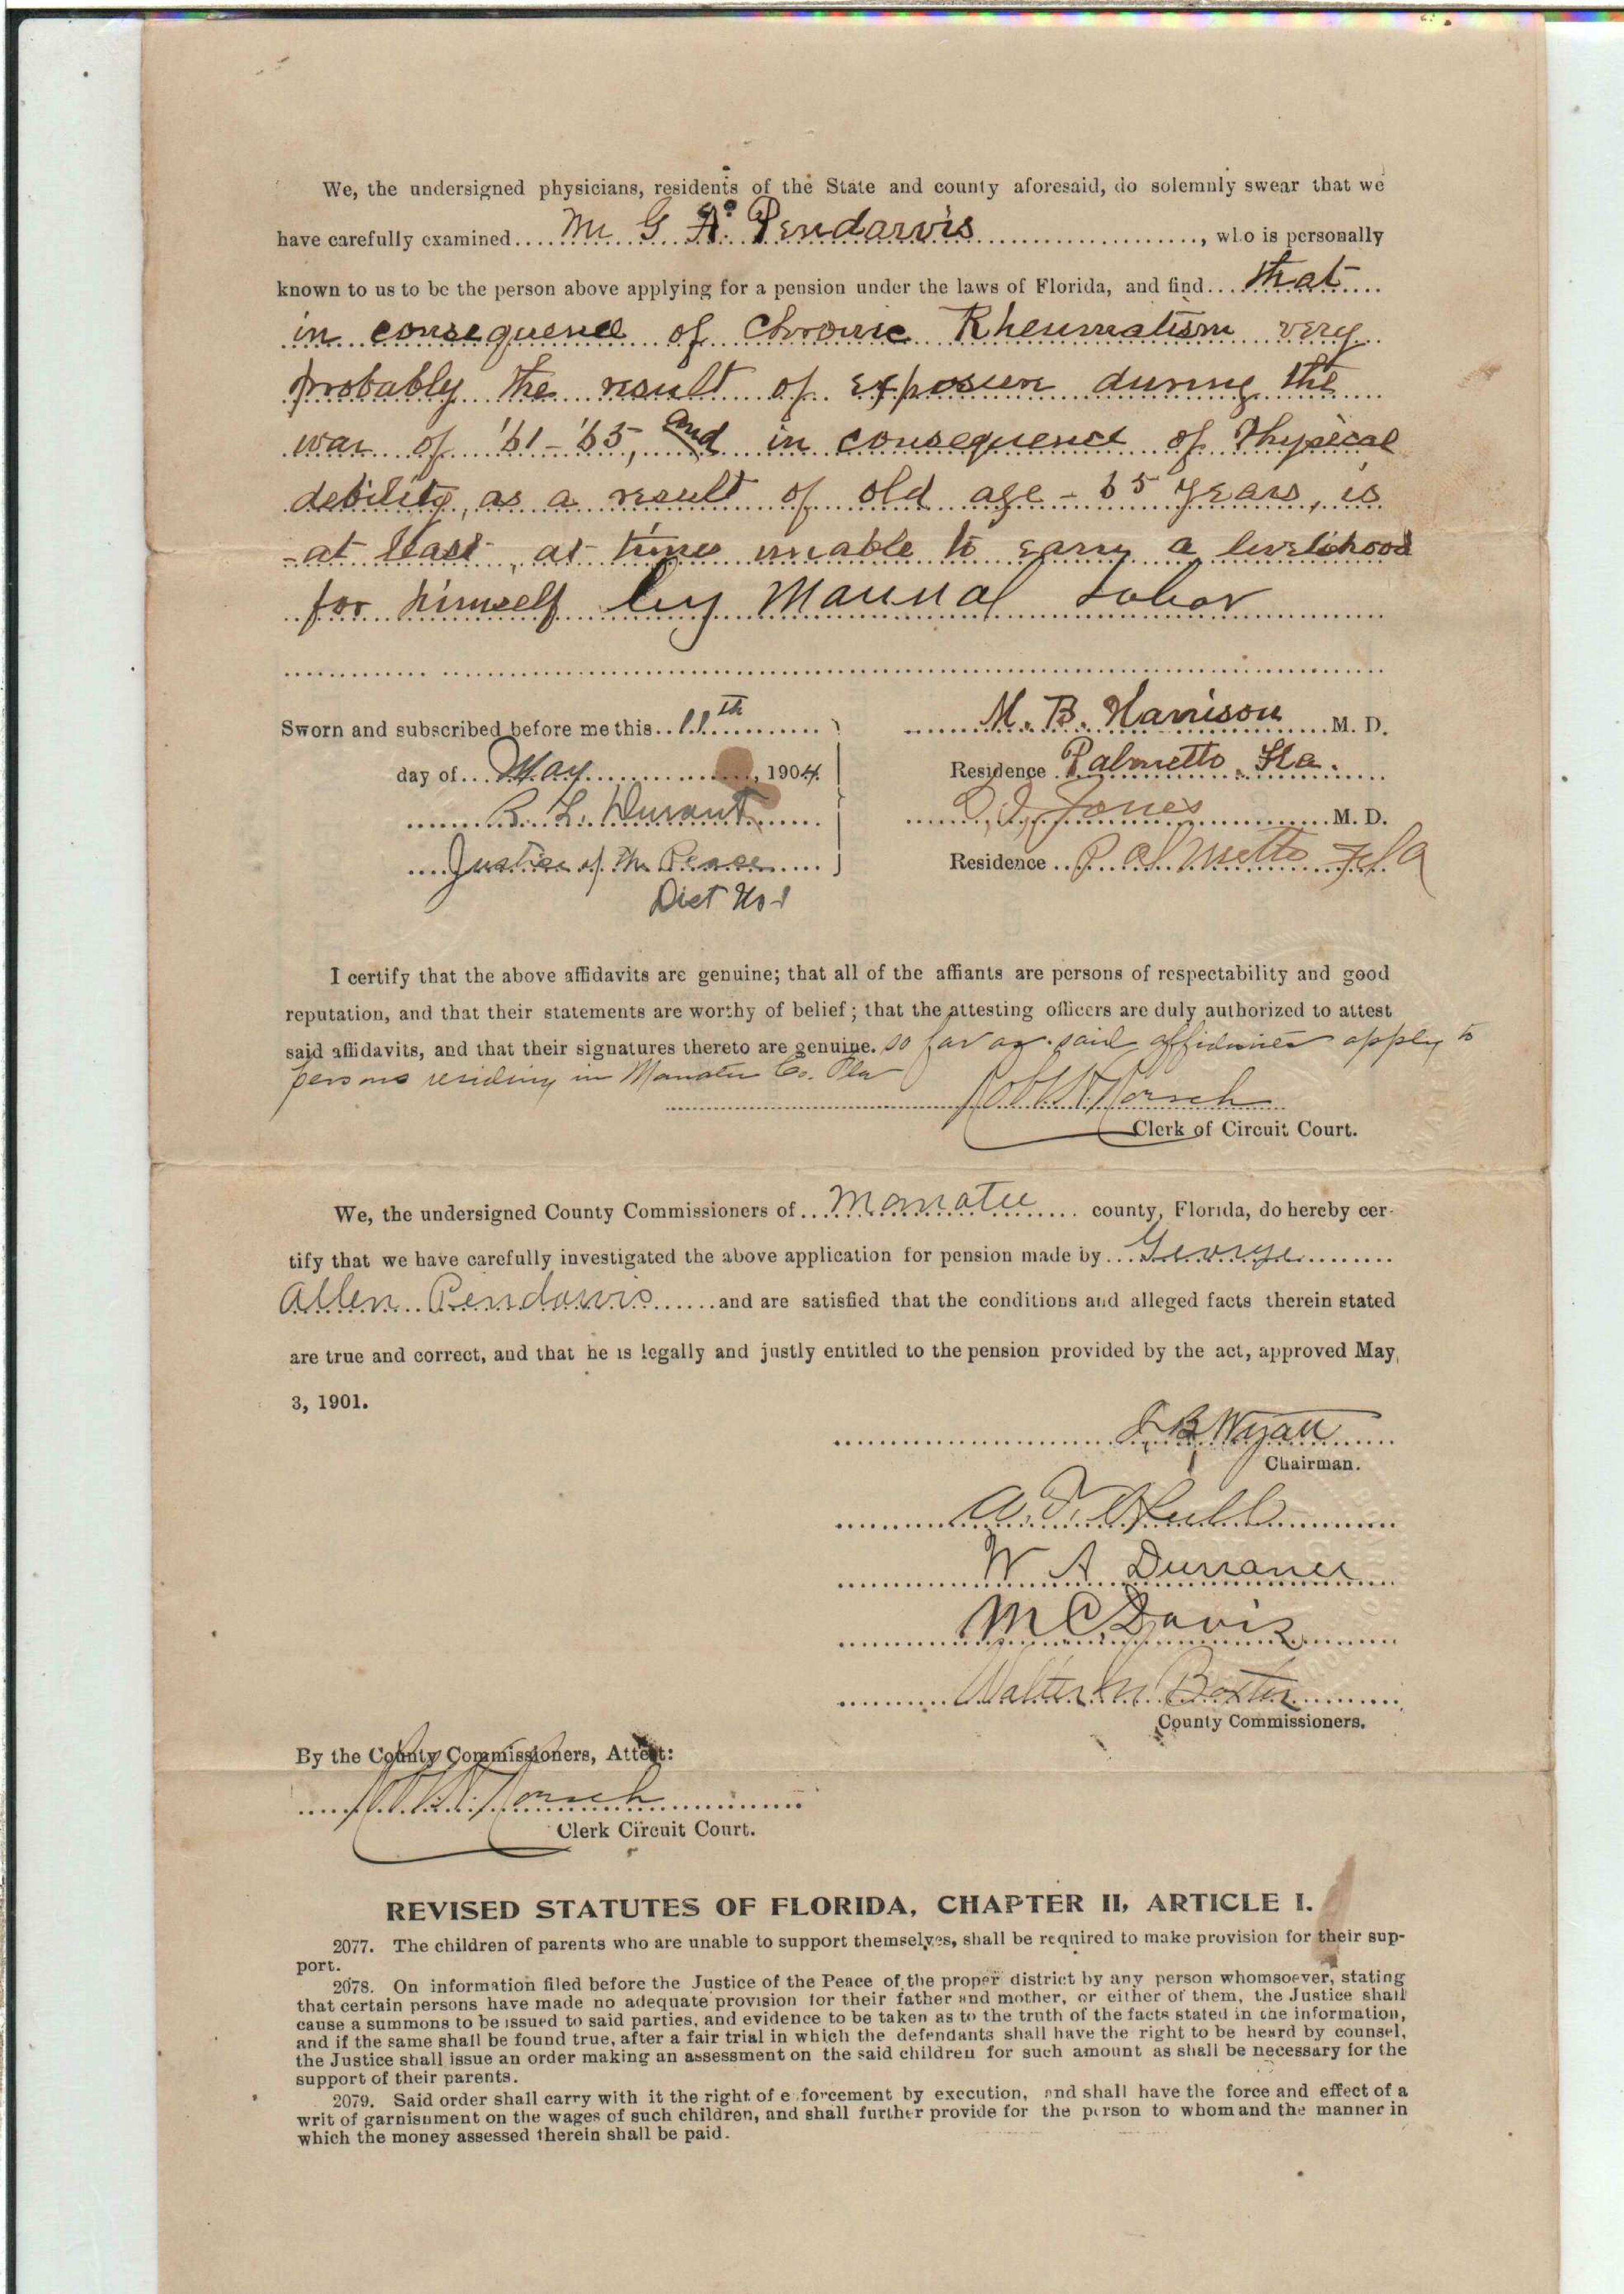 We, the undersigned physicians, residents of the State and county aforesaid, do solemnly swear that we
have carefully examined Mr G A. Pendarvis, who is personally
known to us to be the person above applying for a pension under the laws of Florida, and find that
in consequence of Chronic Rheumatism very
probably the result of exposure during the
war of '61-'65, and in consequence of Physical
debility, as a result of old age - 65 years, is
- at least, at times unable to earn a livelihood
for himself by Manual Labor
Sworn and subscribed before me this 11th
day of May, 1904.
R. L. Durant
Justice of the Peace
Dist No 1
M. B. Harrison M. D.
Residence Palmetto, Fla.
Jones M. D.
Residence Palmetto Fla
I certify that the above affidavits are genuine; that all of the affiants are persons of respectability and good
reputation, and that their statements are worthy of belief; that the attesting officers are duly authorized to attest
said affidavits, and that their signatures thereto are genuine. so far as said affidavits apply to
persons residing in Manatee Co. Fla
Clerk of Circuit Court.
We, the undersigned County Commissioners of Manatee county, Florida, do hereby cer-
tify that we have carefully investigated the above application for pension made by George
Allen Pendarvis and are satisfied that the conditions and alleged facts therein stated
are true and correct, and that he is legally and justly entitled to the pension provided by the act, approved May
3, 1901.
J B Wyatt
Chairman.
W A Durrance
M C. Davis
Walter
County Commissioners.
By the County Commissioners, Attest:
Clerk Circuit Court.
REVISED STATUTES OF FLORIDA, CHAPTER II, ARTICLE I.
2077. The children of parents who are unable to support themselves, shall be required to make provision for their sup-
port.
2078. On information filed before the Justice of the Peace of the proper district by any person whomsoever, stating
that certain persons have made no adequate provision for their father and mother, or either of them, the Justice shall
cause a summons to be issued to said parties, and evidence to be taken as to the truth of the facts stated in the information,
and if the same shall be found true, after a fair trial in which the defendants shall have the right to be heard by counsel,
the Justice shall issue an order making an assessment on the said children for such amount as shall be necessary for the
support of their parents.
2079. Said order shall carry with it the right of enforcement by execution, and shall have the force and effect of a
writ of garnishment on the wages of such children, and shall further provide for the person to whom and the manner in
which the money assessed therein shall be paid.